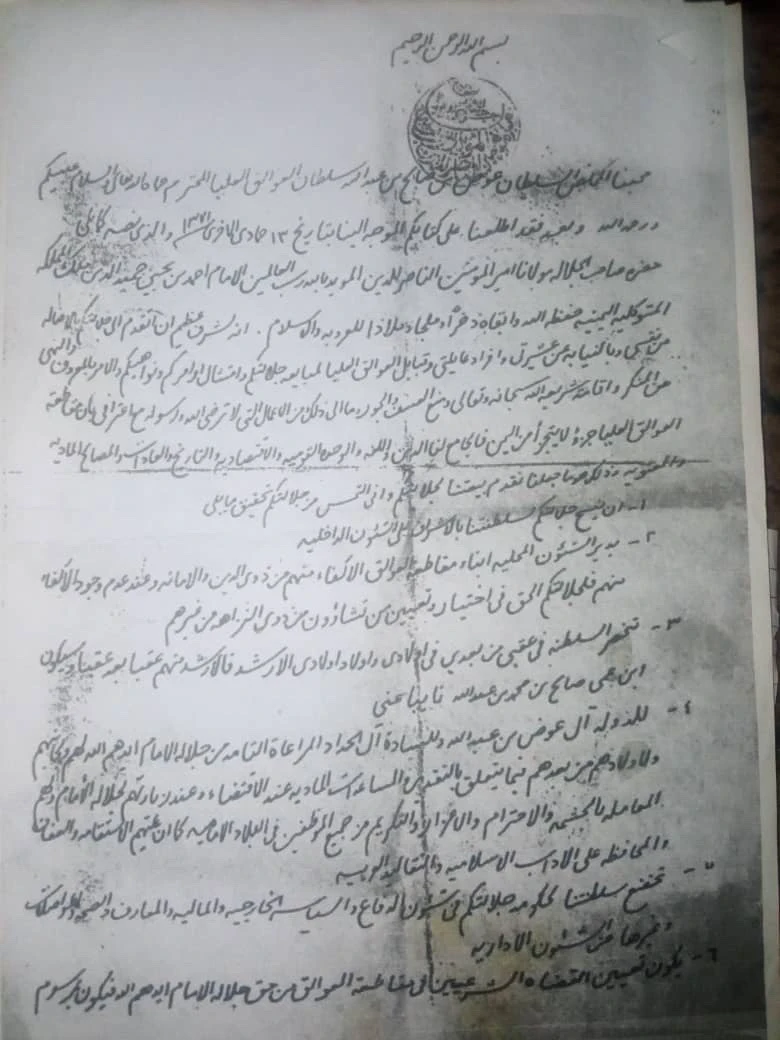 بسم الله الرحمن الرحيم
محبنا السلطان عوض بن صالح بن عبدالله سلطان العوالق العليا المحترم حماه الله تعالى والسلام عليكم
ورحمة الله وبعد فقد اطلعنا على كتابكم الموجه الينا بتاريخ ١٣ جمادى الاخرى ١٣٧١ والذي نصه كما يلي
حضرة صاحب الجلاله مولانا امير المؤمنين الناصر لدين المؤيد بالله رب العالمين الامام احمد بن يحيى حميد الدين ملك المملكه
المتوكليه اليمنيه حفظه الله وابقاه ذخراً وملجأ وملاذا للعروبه والاسلام . انه لشرف عظيم ان اتقدم الى جلالتكم بالاصاله
من نفسي وبالنيابه عن عشيرتي وافراد عائلتي وقبايل العوالق العليا لمبايعه جلالتكم وامتثال اوامركم ونواهيكم والامر بالمعروف والنهي
عن المنكر واقامة شريعة الله سبحانه وتعالى ومنع العسف والجور وما الى ذلك من الاعمال التي لا ترضي الله ورسوله مع اعترافي بان مقاطعة
العوالق العليا جزء لا يتجزأ من اليمن فالجامع لنا الدين واللغه والوحده القوميه والاقتصاديه والتاريخ والعادات والمصالح الماديه
والمعنويه وذلك هو ما جعلنا نقدم بيعتنا لجلالتكم واني التمس من جلالتكم تحقيق ما يلي
١- ان تسمح جلالتكم لسلطنتنا بالاشراف على الشئون الداخليه
٢- يدير الشئون المحليه ابناء مقاطعة العوالق الاكفاء منهم من ذوي الدين والامانه وعند عدم وجود الاكفاء
منهم فلجلالتكم الحق في اختيار وتعيين من تشاؤون من ذوي النزاهه من غيرهم
٣- تنحصر السلطنه في عقبي من بعدي في اولادي واولاد اولادي الارشد فالارشد منهم عقبا بعد عقب وسيكون
ابن عمي صالح بن محمد بن عبدالله نايبا عني
٤- للدوله آل عوض بن عبدالله وللسادة آل الحداد المراعاة التامه من جلاله الامام ايدهم الله لهم
ولاولادهم من بعدهم فيما يتعلق بالتقدير والمساعدات الماديه عند الاقتضاء وعند زيارتهم لجلاله الامام ولهم
المعامله بالحشمه والاحترام والاعزاز والتكريم من جميع الموظفين في البلاد الاماميه كما ان عليهم الاستقامه والعفاف
والمحافظه على الاداب الاسلاميه والتقاليد العربيه
٥- تخضع سلطنتنا لحكومه جلالتكم في شئون الدفاع والسياسه الخارجيه والماليه والمعارف والصحه والمواصلات
وغيرها من الشئون الاداريه
٦- يكون تعيين القضاه الشرعيين في مقاطعة العوالق من حق جلاله الامام ايدهم الله فيكون بمرسوم